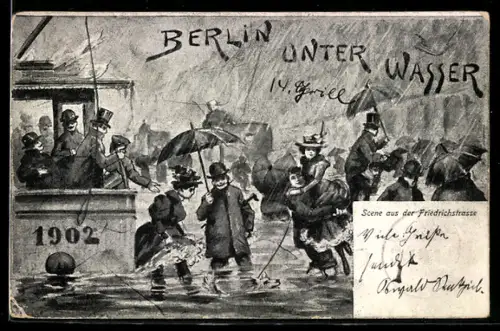 BERLIN
UNTER
WASSER
14. April
1902
Scene aus der Friedrichstrasse
Viele Grüße
sendet
Oswald